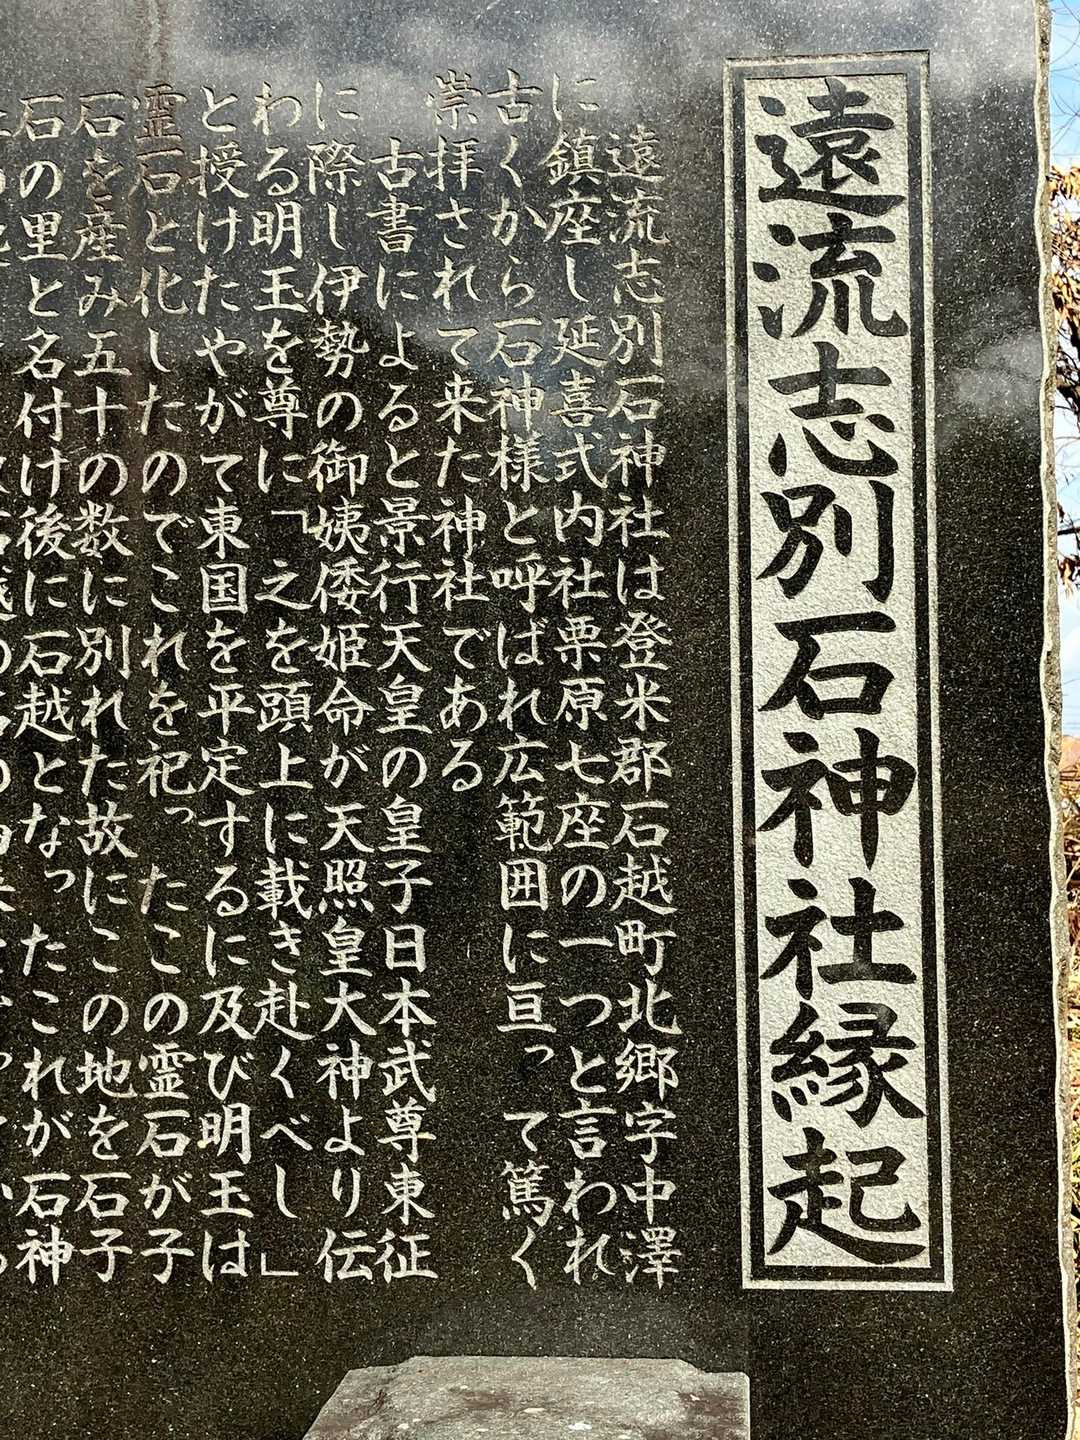 遠流志別石神社縁起
遠流志別石神社は登米郡石越町北郷字中澤
に鎮座し延喜式内社栗原七座の一つと言われ
古くから石神様と呼ばれ広範囲に亘って篤く
崇拝されて来た神社である
古書によると景行天皇の皇子日本武尊東征
に際し伊勢の御姨倭姫命が天照皇大神より伝
わる明玉を尊に「之を頭上に載き赴くべし」
と授けたやがて東国を平定するに及び明玉は
霊石と化したのでこれを祀ったこの霊石が子
石を産み五十の数に別れた故にこの地を石子
石の里と名付け後に石越となったこれが石神